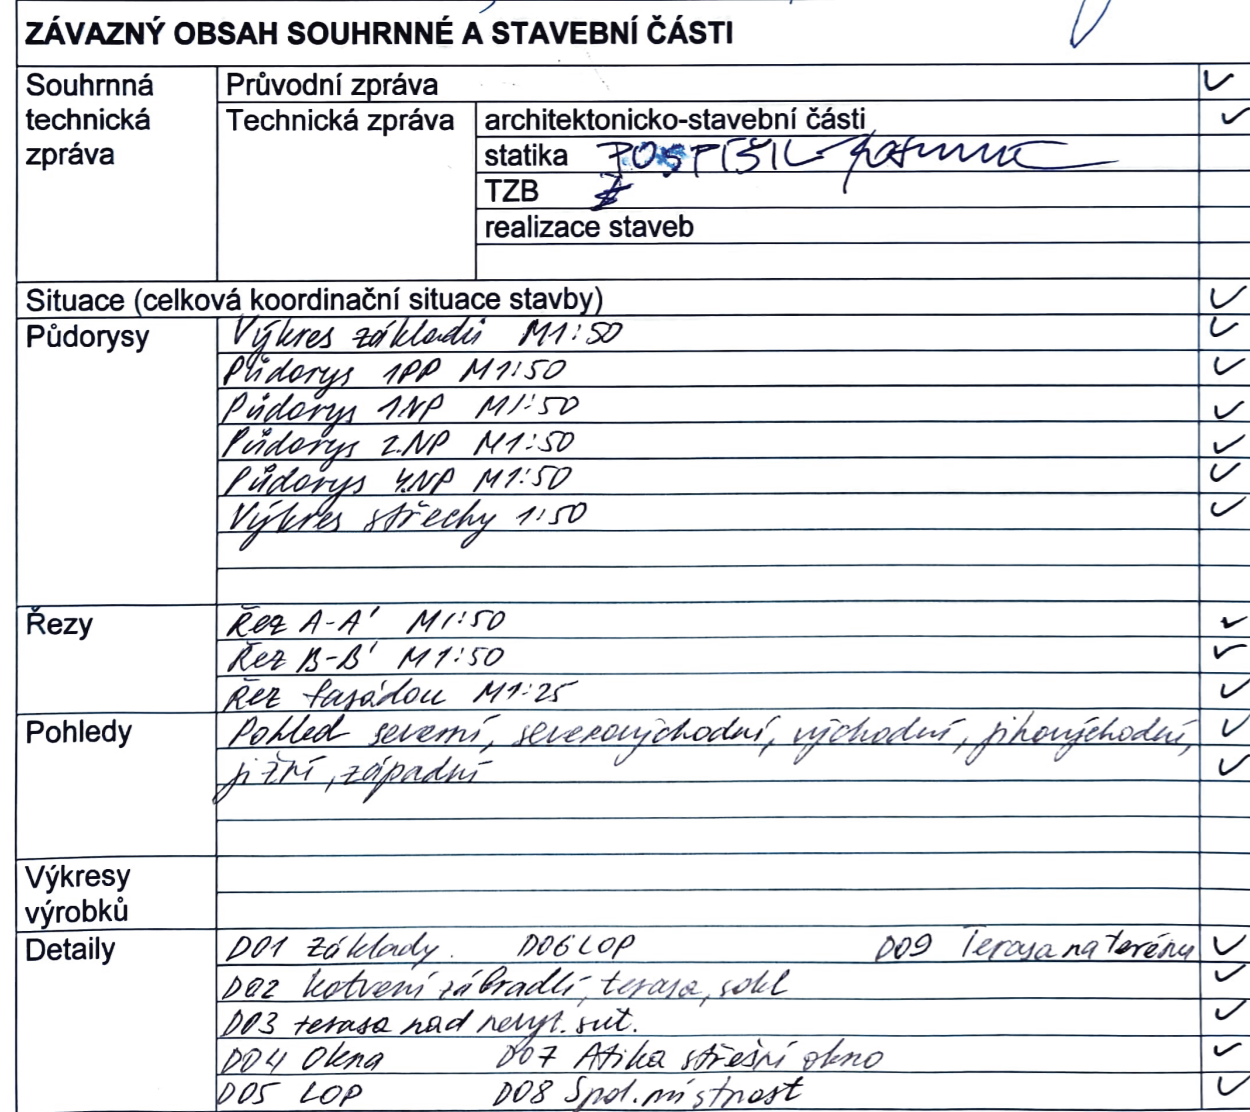 ZÁVAZNÝ OBSAH SOUHRNNÉ A STAVEBNÍ ČÁSTI
Souhrnná technická zpráva
Průvodní zpráva ✓
Technická zpráva
architektonicko-stavební části ✓
statika POSPÍŠIL
TZB
realizace staveb
Situace (celková koordinační situace stavby) ✓
Půdorysy
Výkres základů M1:50 ✓
Půdorys 1PP M1:50 ✓
Půdorys 1NP M1:50 ✓
Půdorys 2.NP M1:50 ✓
Půdorys 4.NP M1:50 ✓
Výkres střechy 1:50 ✓
Řezy
Řez A-A' M1:50 ✓
Řez B-B' M1:50 ✓
Řez fasádou M1:25 ✓
Pohledy
Pohled severní, severovýchodní, východní, jihovýchodní, ✓
jižní, západní ✓
Výkresy výrobků
Detaily
D01 základy D06 LOP D09 Terasa na terénu ✓
D02 kotvení zábradlí, terasa, sokl ✓
D03 terasa nad nevyt. sut. ✓
D04 Okna D07 Atika střešní okno ✓
D05 LOP D08 Spol. místnost ✓